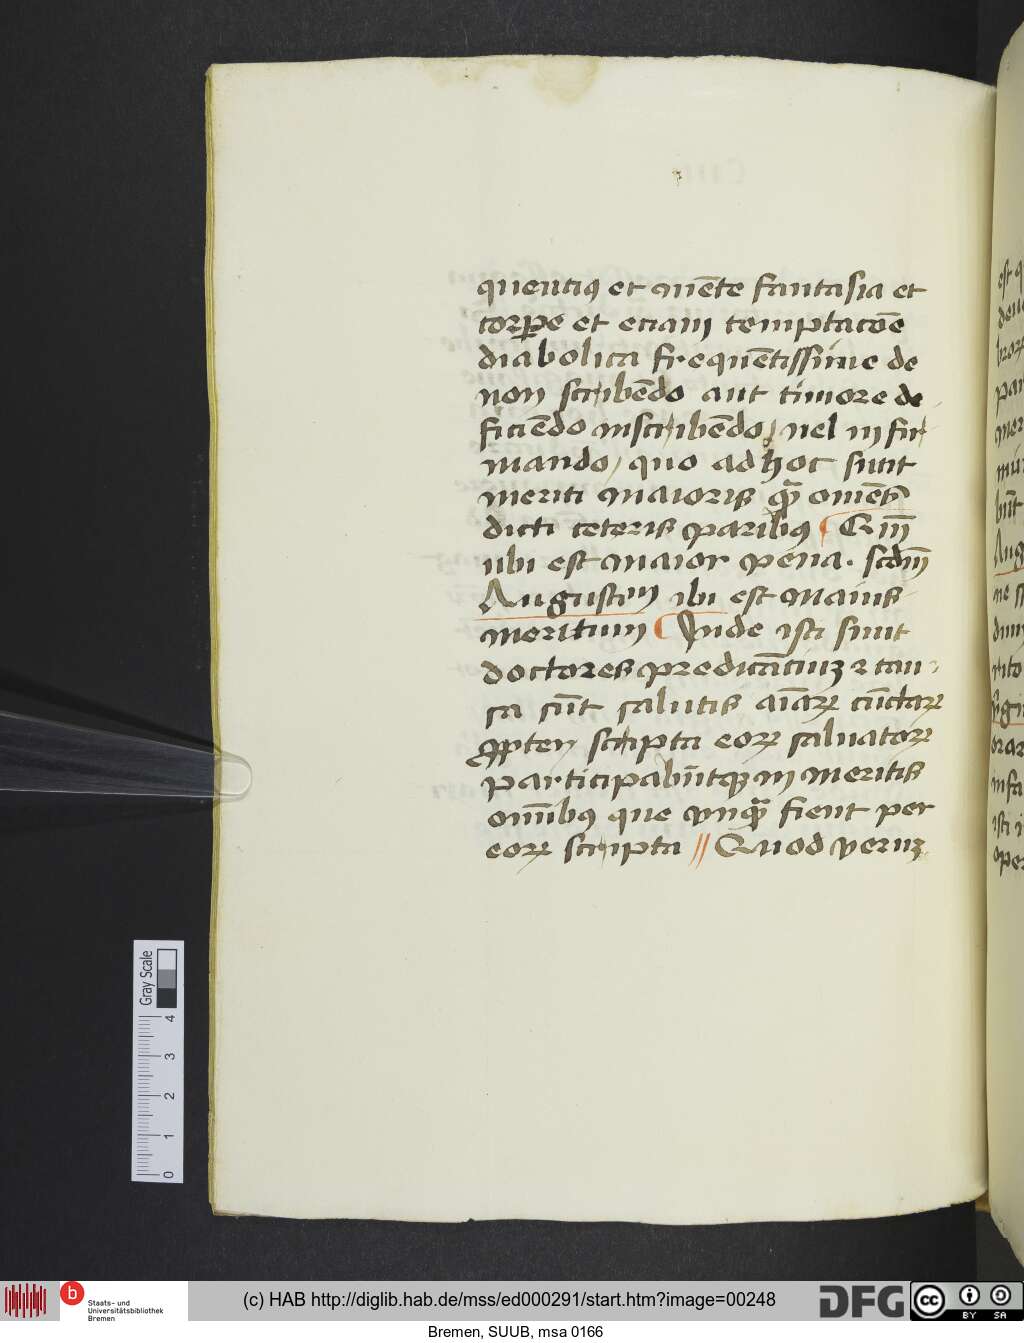 quentiꝰ et mēte fantasia et
torꝑe et etiam temptacōe
diabolica frequētissime de
non scribēdo aut timore de
ficiēdo inscribēdo / vel in fir
mando / quo ad hoc sunt
meriti maioris qꝫ̄ omēs
dicti ceteris paribꝰ Qm̄
ubi est maior pena. scdm̄
Augustinū ibi est maius
meritum Inde isti sunt
doctores predicātiuꝫ ⁊ cau
sa sūt salutis aīaꝝ cūctaꝝ
ꝓpter scripta eoꝝ saluatoꝝ
participabūtqꝫ in meritis
om̄ibꝰ que vnqꝫ̄ fient per
eoꝝ scripta // Quod veruꝫ
Gray Scale
0 1 2 3 4
b Staats- und
Universitätsbibliothek
Bremen
(c) HAB http://diglib.hab.de/mss/ed000291/start.htm?image=00248
DFG
cc BY SA
Bremen, SUUB, msa 0166